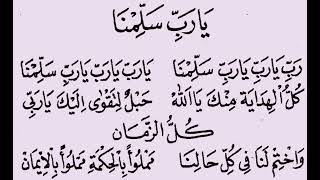 يَارَبِّ سَلِّمْنَا
رَبِّ يَارَبِّ يَارَبِّ سَلِّمْنَا يَارَبِّ يَارَبِّ يَارَبِّ سَلِّمْنَا
كُلُّ الْهِدَايَةِ مِنْكَ يَااَللهُ حَبْلٌ لِتَقْوٰى اِلَيْكَ يَارَبِّي
كُلُّ الزَّمَان
وَاخْتِمْ لَنَا فِي كُلِّ حَالِنَا مَمْلُوْأً بِالْحِكْمَةِ مَمْلُوْأً بِالْاِيْمَان